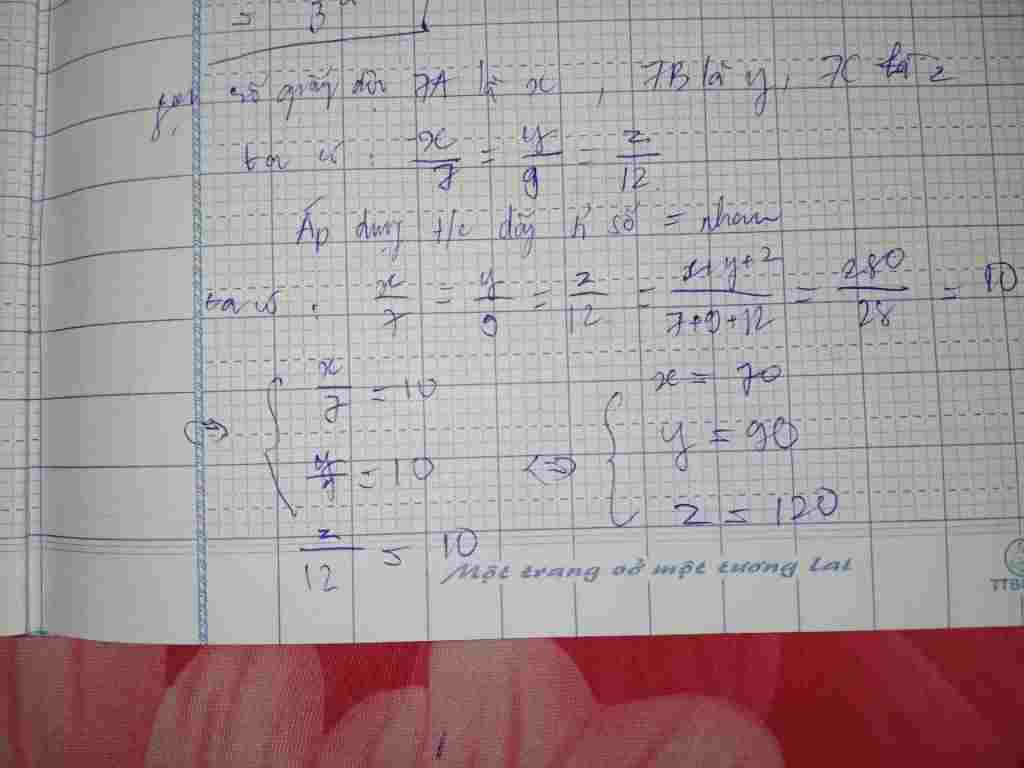 = 3
gọi số giấy đội 7A là x , 7B là y , 7C là z
ta có : x/7 = y/9 = z/12
Áp dụng t/c dãy tỉ số = nhau
ta có : x/7 = y/9 = z/12 = x+y+z/7+9+12 = 280/28 = 10
x/7 = 10 x = 70
=> y/9 = 10 <=> y = 90
z/12 = 10 z = 120
Một trang vở một tương lai